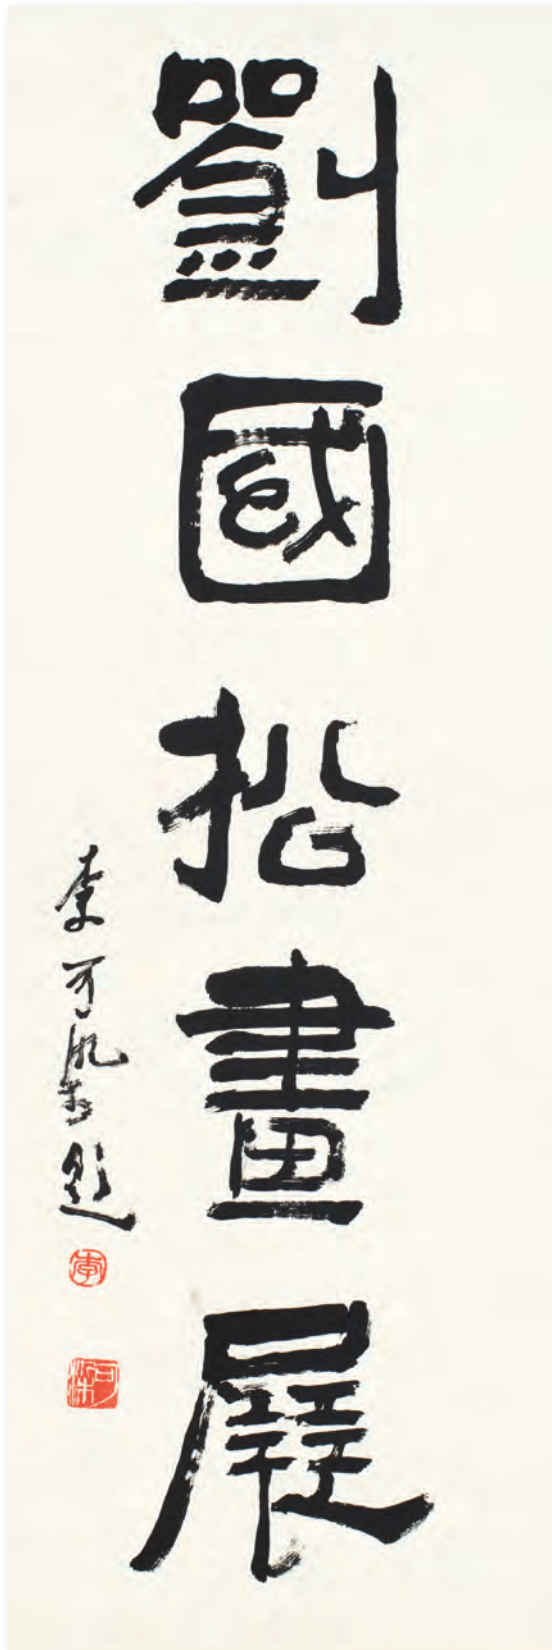 劉國松畫展
李可染題
李
可染